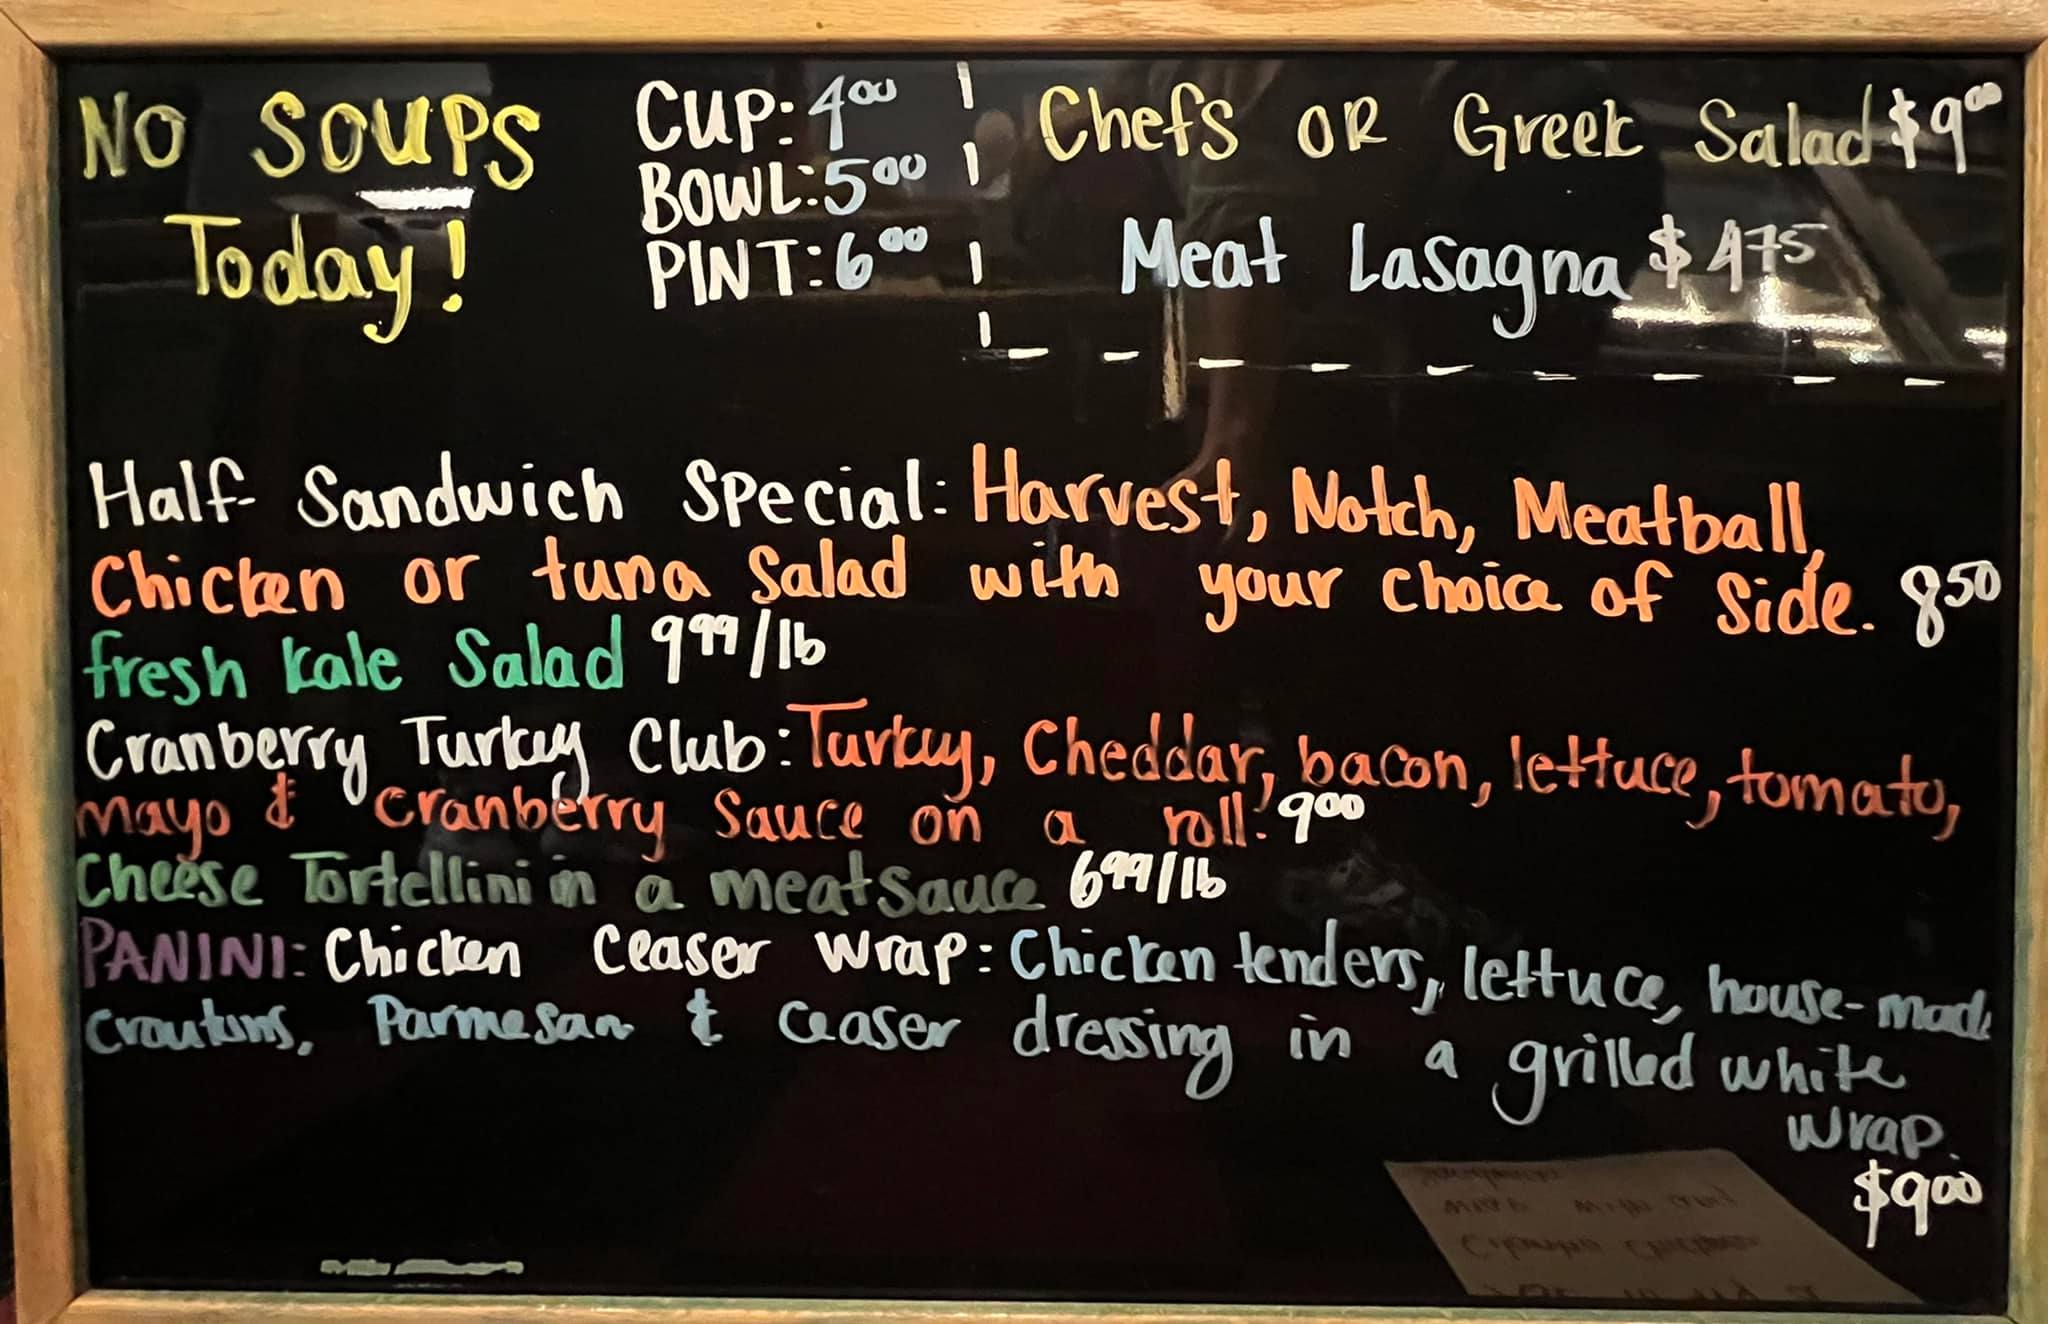 NO SOUPS
Today!
CUP: 4⁰⁰
BOWL: 5⁰⁰
PINT: 6⁰⁰
Chefs OR Greek Salad $9⁰⁰
Meat Lasagna $4⁷⁵
Half- Sandwich Special: Harvest, Notch, Meatball,
Chicken or tuna Salad with your choice of side. 8⁵⁰
fresh kale Salad 9⁹⁹/lb
Cranberry Turkey Club: Turkey, Cheddar, bacon, lettuce, tomato,
mayo & cranberry sauce on a roll. 9⁰⁰
Cheese Tortellini in a meat sauce 6⁹⁹/lb
PANINI: Chicken Ceaser Wrap: Chicken tenders, lettuce, house-made
croutons, Parmesan & Ceaser dressing in a grilled white
wrap.
$9⁰⁰